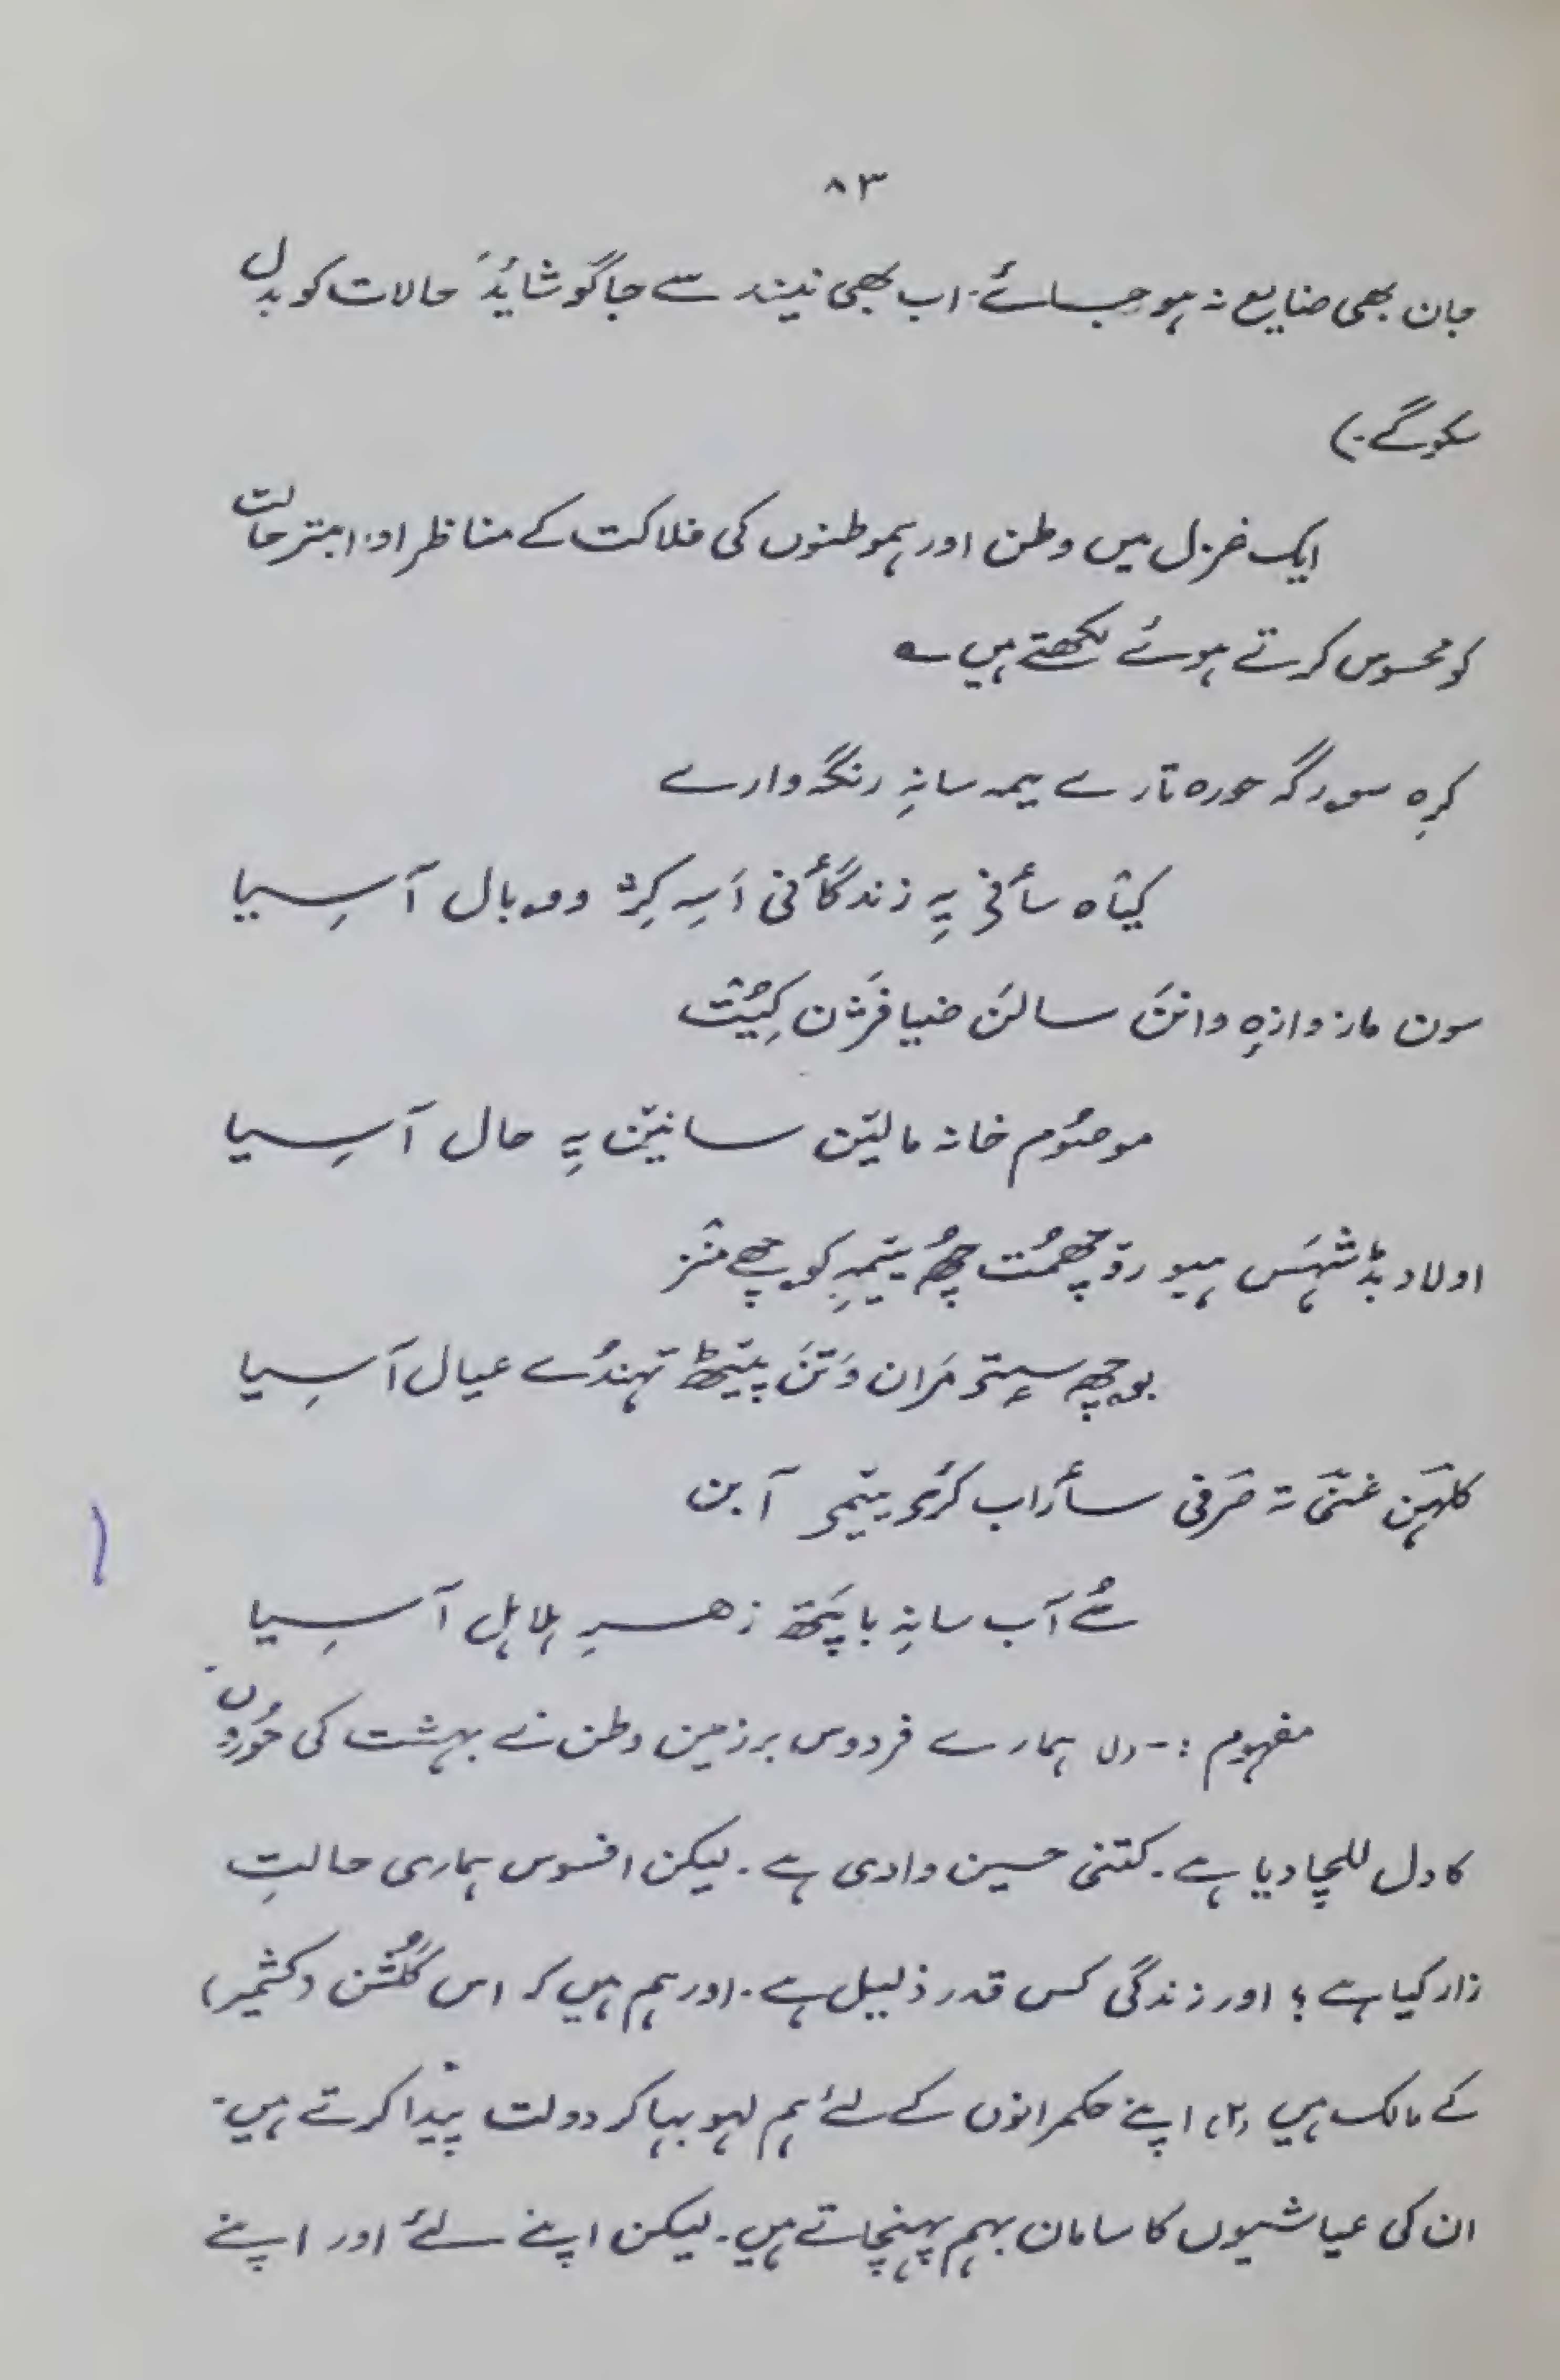 ۸۳
جان بھی ضایع نہ ہو جائے۔ اب بھی نیند سے جاگو شاید حالات کو بدل
سکو گے۔)
ایک غزل میں وطن اور ہموطنوں کی فلاکت کے مناظر اور ابتر حالت
کو محسوس کرتے ہوئے لکھتے ہیں ؎
کرِہ سورگہ حورہ تارے یمہ سانہِ رنگہ وارے
کیتاہ سأنی یہِ زندگأنی اَسہِ کِژ وبال آسِیا
سون ماز وازہِ وانن سالن ضیافژن کِیُت
موصُوم خانہ مالیَن سانیَن یہِ حال آسِیا
اولاد بڈشہَس ہیو رۆچھمُت چھُ یتیمہِ کوچھے منٛز
بوچھہِ سیتۍ مَران وَتَن پیٹھ تہندُے عیال آسِیا
کلہَن غنَی تہ صَرفی سأراب کٔرۍ یتیمۍ آبن
سُے آب سانہِ باپتھ زھرِ ہلاہل آسِیا
مفہوم :- (۱) ہمارے فردوس بر زمین وطن نے بہشت کی حُوروں
کا دل للچا دیا ہے۔ کتنی حسین وادی ہے۔ لیکن افسوس ہماری حالتِ
زار کیا ہے؟ اور زندگی کس قدر ذلیل ہے۔ اور ہم ہیں کہ اس گُلشن (کشمیر)
کے مالک ہیں (۲) اپنے حکمرانوں کے لئے ہم لہو بہا کر دولت پیدا کرتے ہیں۔
ان کی عیاشیوں کا سامان بہم پہنچاتے ہیں۔ لیکن اپنے لئے اور اپنے